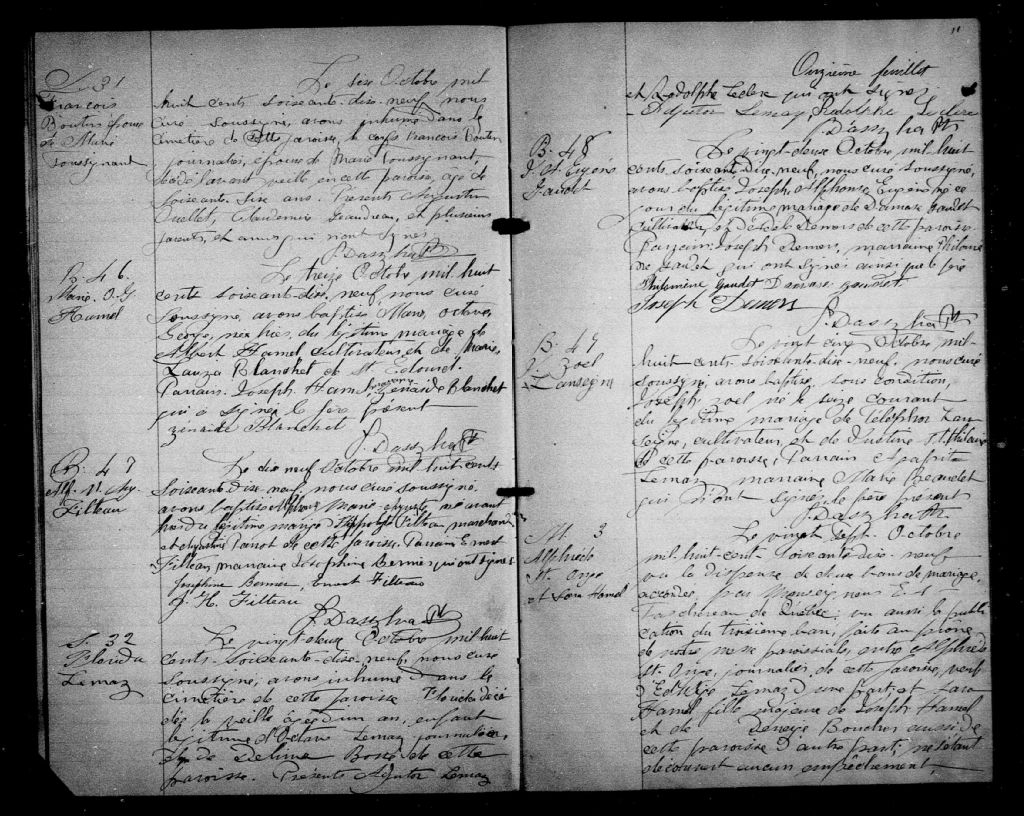 S. 31
François
Boutin épou
de Marie
Toussignant
Le six Octobre mil
huit cents soixante-dix-neuf, nous
curé soussigné, avons inhumé dans le
cimetière de cette paroisse, le corps François Boutin
journalier, époux de Marie Toussignant,
décédé l'avant veille en cette paroisse, agé de
soixante-six ans. Présents Augustin
Ouellet, Gaudreau, et plusieurs
parents, et amis qui n'ont signé
B. 46
Marie. O. G
Hamel
Le treize Octobre mil huit
cents soixante-dix-neuf nous curé
soussigné, avons baptisé Marie, Octavie
George, née hier, du légitime mariage de
Albert Hamel cultivateur, et de Marie
Blanchet de St.
Parrain Joseph Hamel, marraine Zénaïde Blanchet
qui a signé le père présent
Zenaide Blanchet
B. 47
Filteau
Le dix neuf Octobre mil huit cents
soixante-dix-neuf, nous curé soussigné,
avons baptisé Marie né avant
hier du légitime mariage Filteau marchand
et de cette paroisse. Parrain Ernest
Filteau, marraine Joséphine Bernier qui ont signés
Josephine Bernier, Ernest Filteau
J. H. Filteau
S. 32
Florida
Lemay
Le vingt-deux Octobre mil huit
cents-soixante-dix-neuf, nous curé
soussigné, avons inhumé dans le
cimetière de cette paroisse décé
dée la veille agée d'un an, enfant
légitime d'Octave Lemay journalier
et de Delima de cette
paroisse. Présents Lemay
11
Onzième feuillet
et Rodolphe Leclerc qui ont signés
Lemay Rodolphe Leclerc
B. 48
J. A. Eugène
Gaudet
Le vingt-deux Octobre mil huit
cents soixante dix-neuf, nous curé soussigné,
avons baptisé Joseph, Alphonse, Eugène né ce
jour du légitime mariage de Damase Gaudet
cultivateur, et de Demers de cette paroisse
Parrain Joseph Demers, marraine Philomè
ne Gaudet qui ont signés ainsi que le père
Philomène Gaudet Damase Gaudet
Joseph Demers
B. 49
J. Zoël
Lanseigne
Le vingt cinq Octobre mil-
huit-cents-soixante-dix-neuf, nous curé
soussigné, avons baptisé, sous condition,
Joseph Zoel né le seize courant
du légitime mariage de Télesphor Lan
seigne, cultivateur, et de Justine St. Hilaire
de cette paroisse, Parrain
Lemay marraine Marie Beaudet
qui n'ont signés, le père présent
M. 3
Alphrède
St. Onge
et Sara Hamel
Le vingt-sept-Octobre
mil-huit-cent-soixante-dix-neuf
vu la dispense de deux bans de mariage,
accordés par Monseigneur E. A.
Taschereau de Québec; vu aussi la publi
cation du troisième ban, faite au prône
de notre messe paroissiale, entre Alphrède
St. Onge, journalier, de cette paroisse, veuf
d'Edwige Lemay d'une part; et Sara
Hamel fille majeure de Joseph Hamel
et de Boucher aussi de
cette paroisse d'autre part; ne s'étant
découvert aucun empêchement,